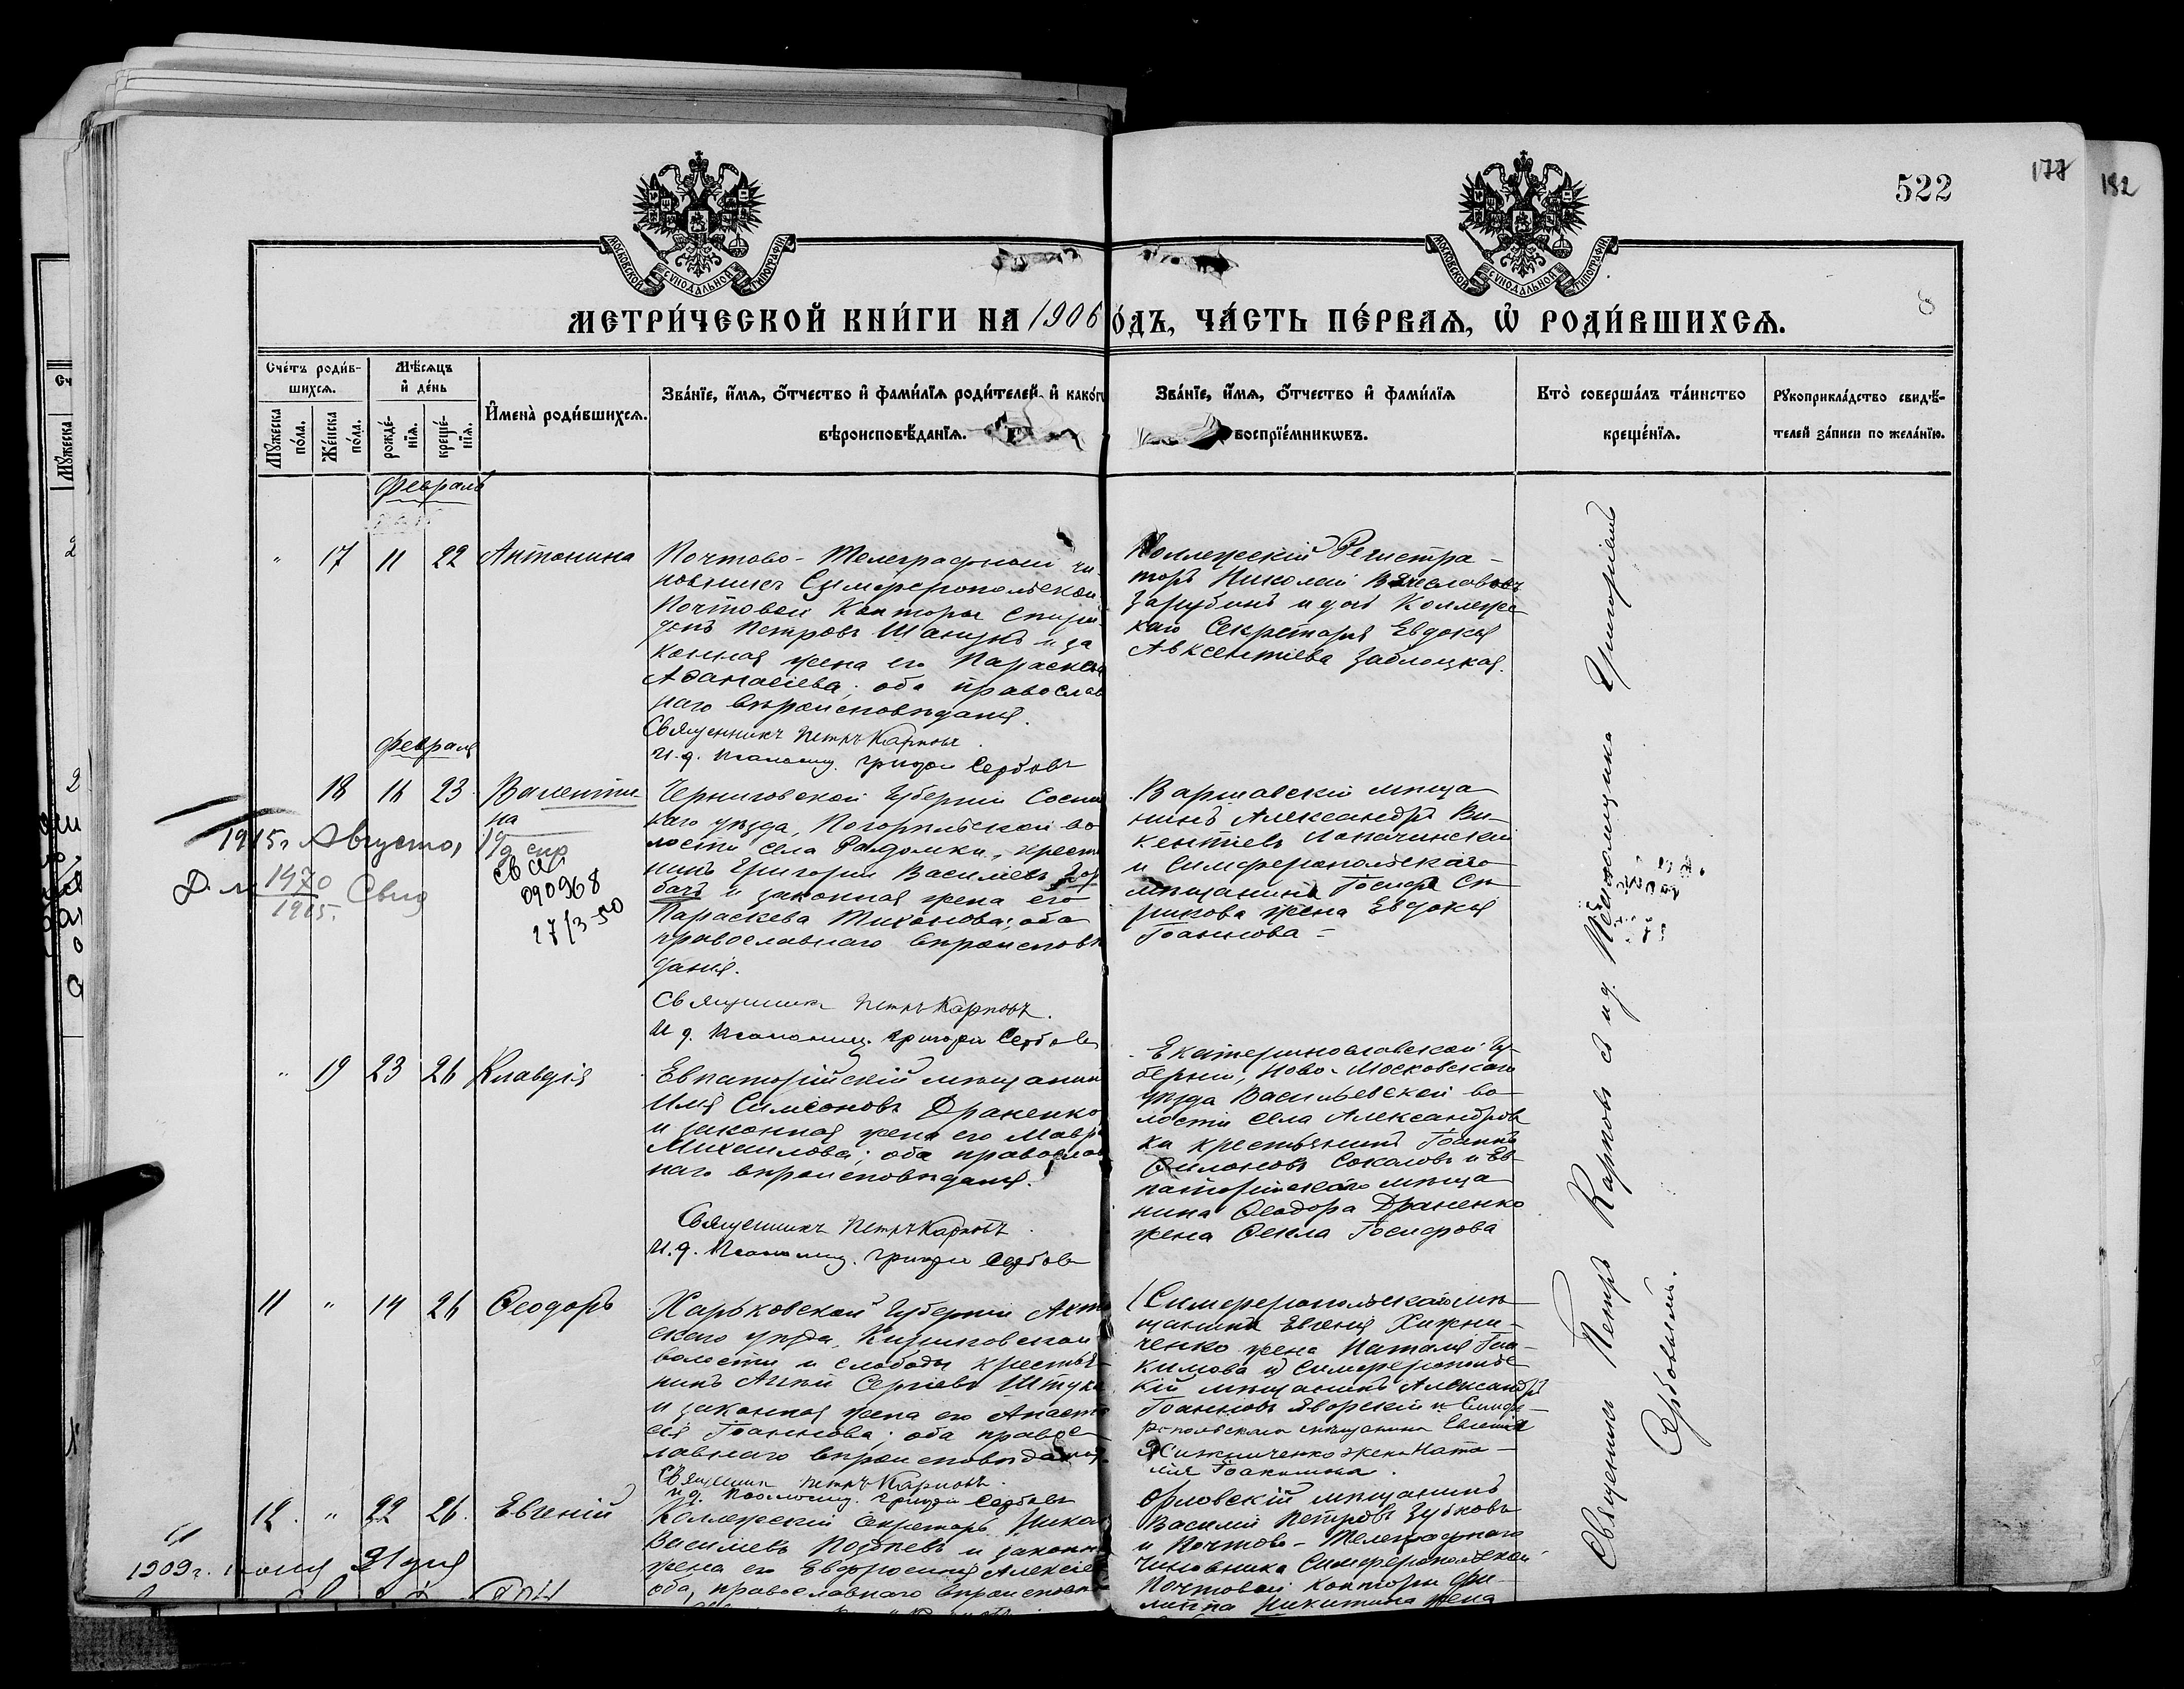 522
177
182
8
МОСКОВСКОЙ СѴНОДАЛЬНОЙ ТИПОГРАФІИ
МОСКОВСКОЙ СѴНОДАЛЬНОЙ ТИПОГРАФІИ
МЕТРИ́ЧЕСКОЙ КНИ́ГИ НА 1906 ѻ́ДЪ, ЧА́СТЬ ПЕ́РВАѦ, Ѡ҆ РОДИ́ВШИХСѦ.
Сче́тъ роди́в-
шихсѧ.
Мꙋ́жеска по́ла.
Же́нска по́ла.
Мѣ́сѧцъ
и҆ де́нь
рожде́-
нїѧ.
креще́-
нїѧ.
И҆мена̀ роди́вшихсѧ.
Зва́нїе, и҆́мѧ, ѻ҆́тчество и҆ фами́лїѧ роди́телей, и҆ како́гѡ
вѣроисповѣ́данїѧ.
Зва́нїе, и҆́мѧ, ѻ҆́тчество и҆ фами́лїѧ
воспрїе́мникѡвъ.
Кто̀ соверша́лъ та́инство
креще́нїѧ.
Рꙋкоприкла́дство свидѣ́-
телей за́писи по жела́нїю.
Февраль
" 17 11 22 Антонина
Почтово-Телеграфный чи-
новникъ Симферопольской
Почтовой Конторы Спири-
донъ Петровъ и за
конная жена его Параскева
Аѳанасіева; оба православ
наго вѣроисповѣданія.
Священникъ Петръ Карповъ.
И. д. Псаломщ. Григорій Сербовъ
Коллежскій Регистра-
торъ Николай Вячеславовъ
Зарубинъ и дочь Коллежс
каго Секретаря Евдокія
Авксентіева Заблоцкая.
Февраля
18 16 23 Валенти
на
1915 г. Августа, 19 д. спр
Д. № 1970
1915. Свид
090968
27/3-50
Черниговской Губерніи Сосни
каго уѣзда, Погорѣльской во
лости села Радомки, крестья
нинъ Григорій Васильевъ Гор
бачъ и законная жена его
Параскева Тихонова; оба
православнаго вѣроисповѣ
данія.
Священникъ Петръ Карповъ.
И. д. Псаломщ. Григорій Сербовъ
Варшавскій мѣща
нинъ Александръ Ви-
кентіевъ Лопачинскій
и Симферопольскаго
мѣщанина Іосифа Сп
рикова жена Евдокія
Іоаннова
" 19 23 26 Клавдія
Евпаторійскій мѣщанинъ
Илія Симеоновъ Драненко
и законная жена его Мавра
Михаилова; оба православ
наго вѣроисповѣданія.
Священникъ Петръ Карповъ
И. д. Псаломщ. Григорій Сербовъ
Екатеринославской Гу-
берніи, Ново-Московскаго
уѣзда Васильевской во-
лости села Александров
ка крестьянинъ Іоаннъ
Филоновъ Соколовъ и Ев-
паторійскаго мѣща
нина Ѳеодора Драненко
жена Ѳекла Іосифова
11 " 14 26 Ѳеодоръ
Харьковской Губерніи Ахты
скаго уѣзда, Кириковской
волости и слободы крестья-
нинъ Агѣй Сергіевъ Штука
и законная жена его Анаста
сія Іоаннова; оба правос-
лавнаго вѣроисповѣданія.
Священникъ Петръ Карповъ.
и д. Псаломщ. Григорій Сербовъ
(Симферопольскаго мѣ
щанина Евгенія Хижни-
ченко жена Наталія Іоа-
кимова и) Симферопольс
кій мѣщанинъ Александръ
Іоанновъ Яворскій и Симфе-
ропольскаго мѣщанина Евгенія
Хижниченко жена Ната-
лія Іоакимова.
12 " 22 26 Евгеній
1909 г. іюня 21 дня
Коллежскій Секретарь Никол
Васильевъ Поздневъ и законн
жена его Евфросинія Алексіев
оба, православнаго вѣроисповѣ
Орловскій мѣщанинъ
Василій Петровъ Зубковъ
и Почтово-Телеграфнаго
Чиновника Симферопольской
Почтовой Конторы Фи-
липпа Никитина жена
Священникъ Петръ Карповъ съ и. д. Псаломщика Григоріемъ
Сербовымъ.